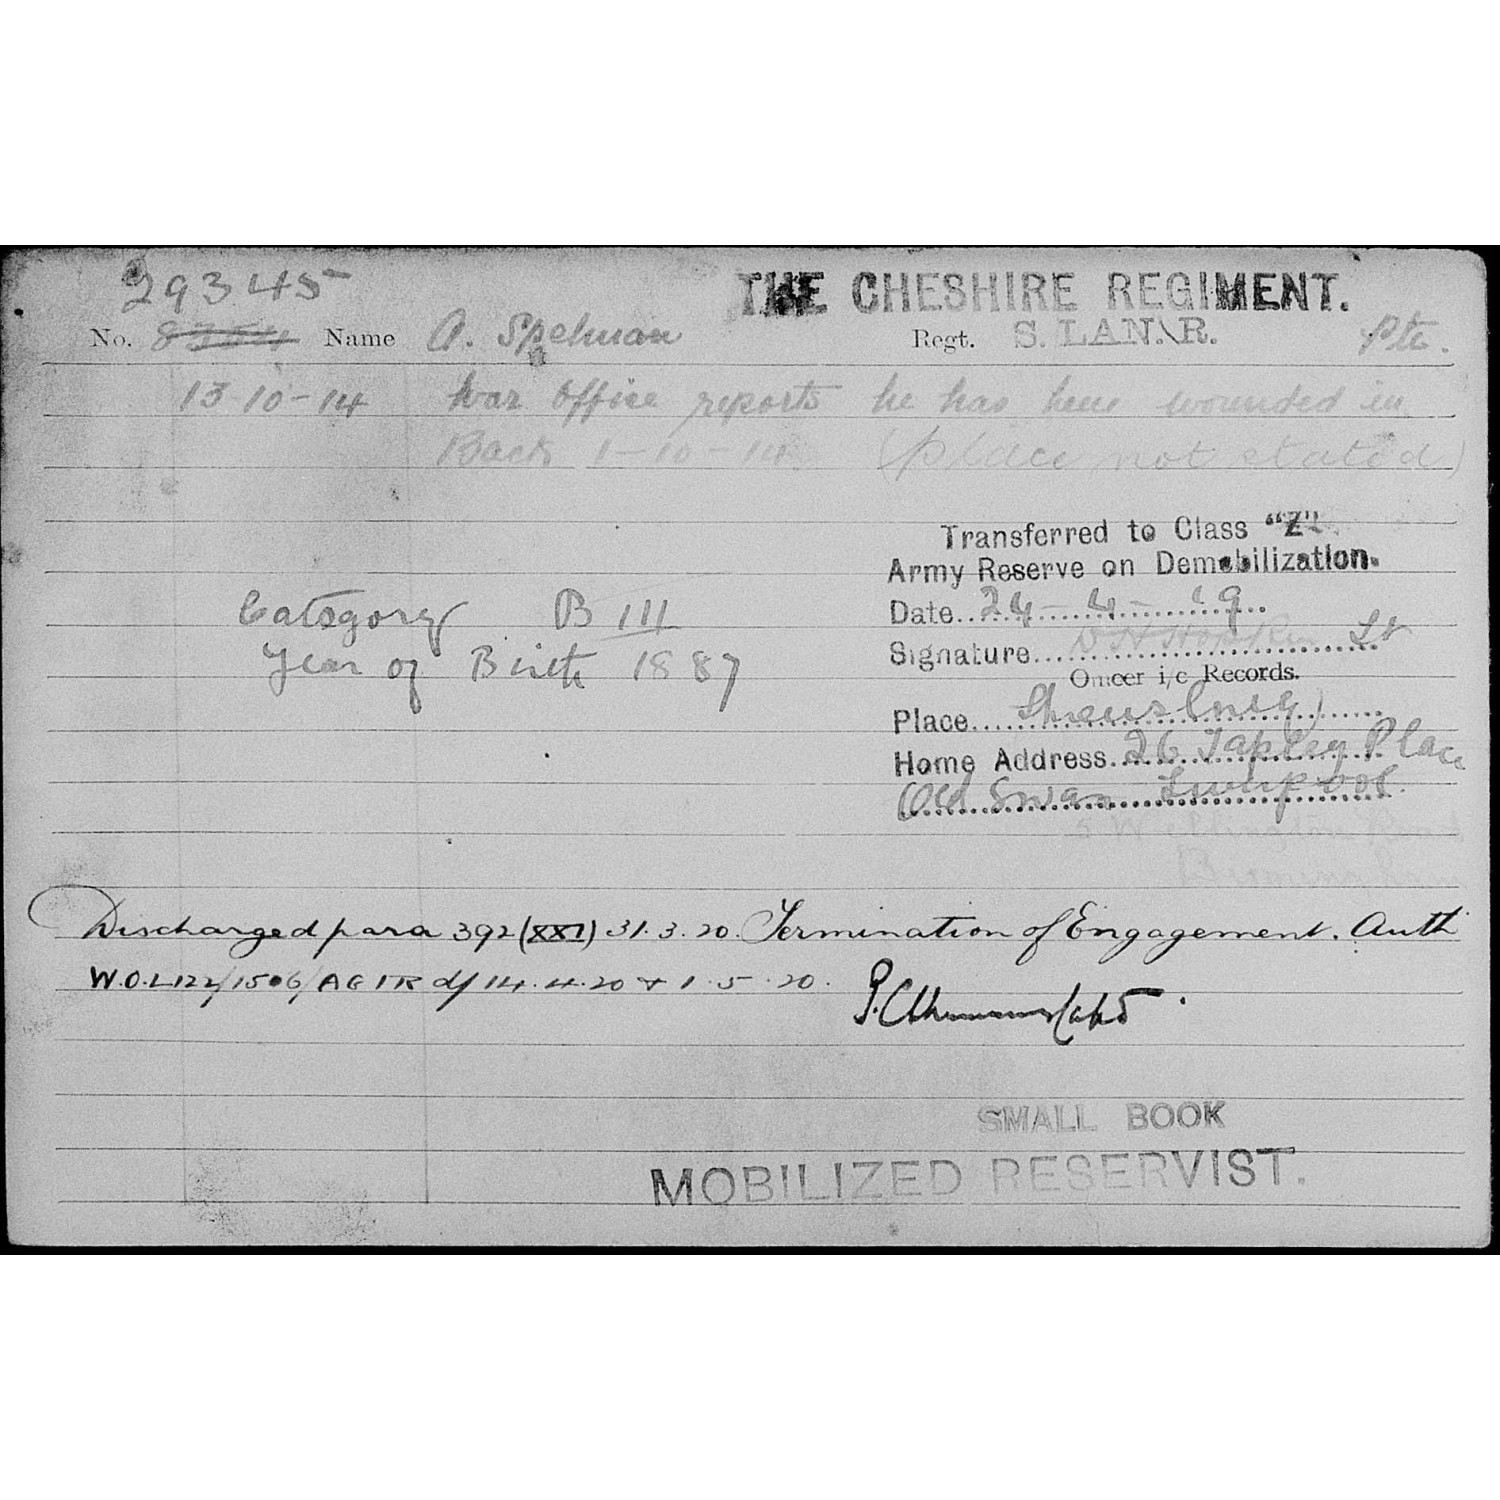 29345
THE CHESHIRE REGIMENT.
No. Name A. Spelman Regt. S. LAN. R. Pte.
13-10-14 War Office reports he has been wounded in
Back 1-10-14 (place not stated)
Transferred to Class "Z"
Army Reserve on Demobilization.
Date 24-4-19
Category B III
Signature Lt
Year of Birth 1887
Officer i/c Records.
Place Shrewsbury
Home Address. 26 Tapley Place
Old Swan Liverpool.
Wellington Road
Discharged para 392 (XXI) 31.3.20. Termination of Engagement. Auth
W.O.L 122/1506/AG 1R d/ 14.4.20 + 1.5.20.
Capt
SMALL BOOK
MOBILIZED RESERVIST.